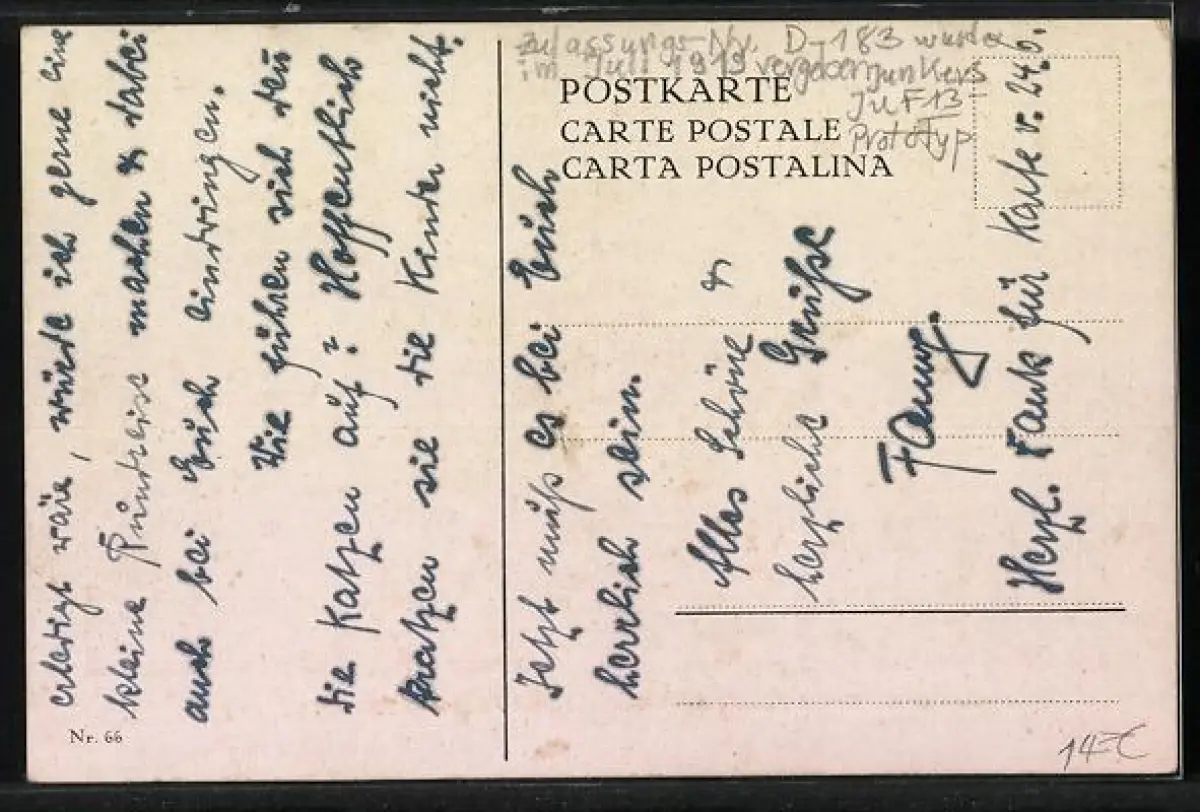 erledigt wäre, würde ich gerne eine
kleine Rundreise machen & dabei
auch bei Euch eindringen.
Wie führen sich denn
die Katzen auf? Hoffentlich
kratzen sie die Kinder nicht.
Nr. 66
Zulassungs-Nr. D-183 wurde
im Juli 1919 vergeben Junkers
Ju F13-
Prototyp
POSTKARTE
CARTE POSTALE
CARTA POSTALINA
Jetzt muß es bei Euch
herrlich sein.
Alles Schöne &
herzliche Grüße
Fanny.
Herzl. Dank für Karte v. 24.6.
14-€